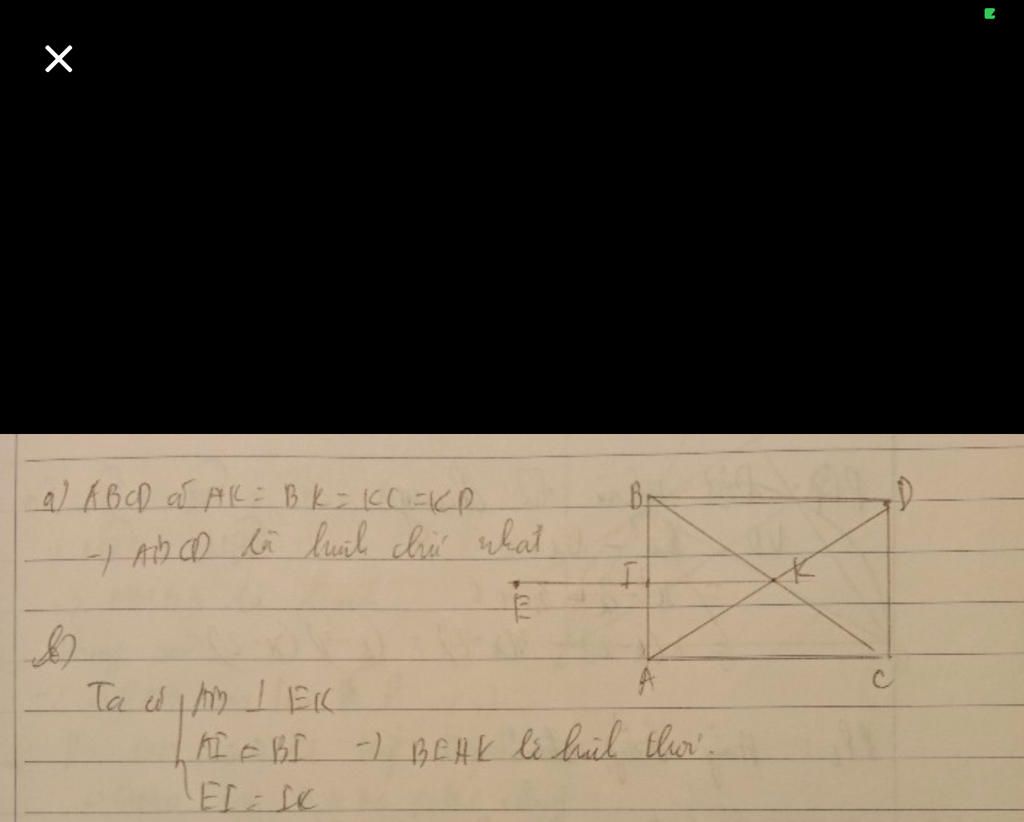 a) ABCD có AK = BK = KC = KD
→ ABCD là hình chữ nhật
B
D
I
K
E
b)
A
C
Ta có AB ⊥ EK
AI = BI → BEAK là hình thoi.
EI = IK